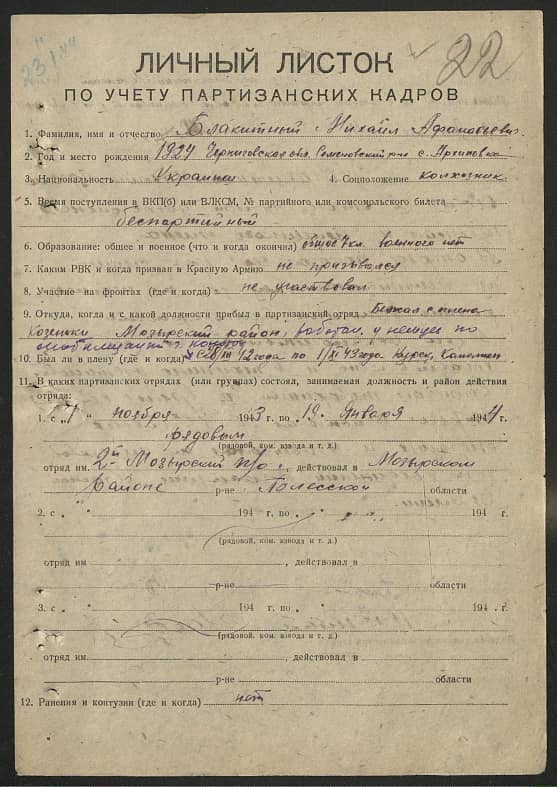 23/1.44
22
ЛИЧНЫЙ ЛИСТОК
ПО УЧЕТУ ПАРТИЗАНСКИХ КАДРОВ
1. Фамилия, имя и отчество Блакитный Михаил Афанасьевич
2. Год и место рождения 1924 Черниговская обл. Семеновский р-н с. Архиповка
3. Национальность Украинец 4. Соцположение колхозник
5. Время поступления в ВКП(б) или ВЛКСМ, № партийного или комсомольского билета
беспартийный
6. Образование: общее и военное (что и когда окончил) общее 7 кл. военного нет
7. Каким РВК и когда призван в Красную Армию не призывался
8. Участие на фронтах (где и когда) не участвовал
9. Откуда, когда и с какой должности прибыл в партизанский отряд Бежал с плена
Козенки Мозырский район, работал у немцев по
мобилизации
10. Был ли в плену (где и когда) 42 года по 1/XI 43 года Курск,
11. В каких партизанских отрядах (или группах) состоял, занимаемая должность и район действия
отряда:
1. с "7" ноября 1943 г. по "19" Января 1944 г.
рядовым
(рядовой, ком. взвода и т. д.)
отряд им. 2-й Мозырский п/о, действовал в Мозырском
Районе р-не Полесской области
2. с " " 194 г. по " " 194 г.
(рядовой, ком. взвода и т. д.)
отряд им , действовал в
р-не области
3. с " " 194 г. по " " 194 г.
(рядовой, ком. взвода и т. д.)
отряд им. , действовал в
р-не области
12. Ранения и контузии (где и когда) нет